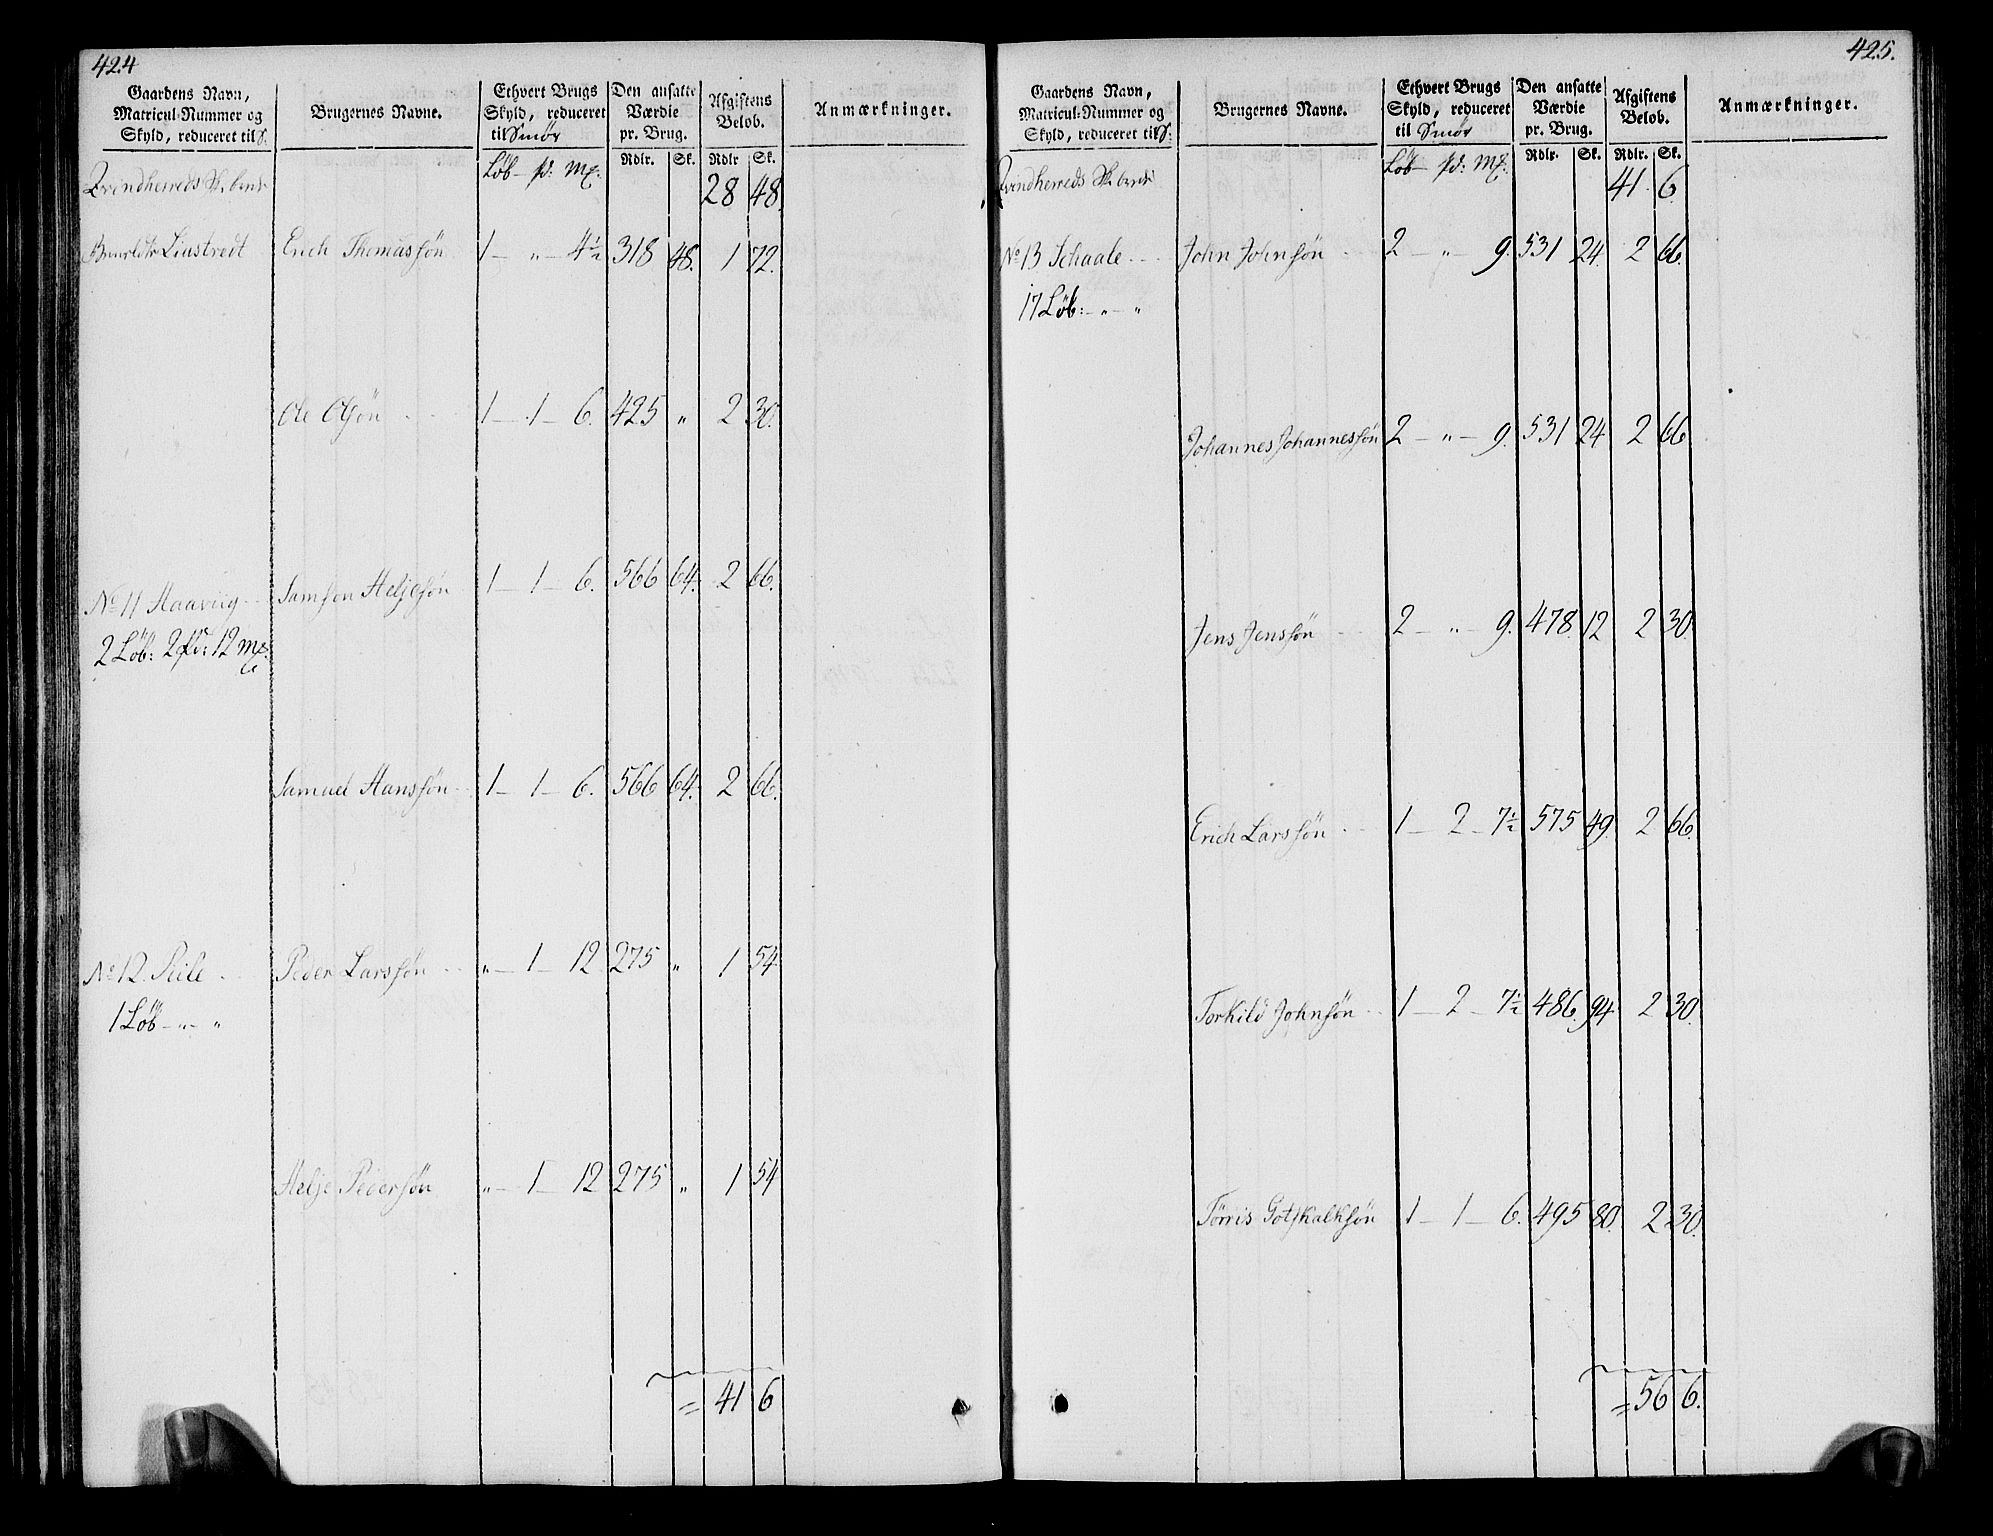 424
Gaardens Navn, Matricul-Nummer og Skyld, reduceret til S. | Brugernes Navne. | Ethvert Brugs Skyld, reduceret til Smör | Den ansatte Værdie pr. Brug. | Afgiftens Beløb. | Anmærkninger.
Löb — pd: m&. | Rdlr. | Sk. | Rdlr | Sk.
Qvindherreds 28 48.
Liustredt Erich Thomassön 1 — " — 4½ 318 48. 1 72.
Ole Olsön 1 — 1 — 6. 425 " 2 30.
No 11 Haavig Samson Heljesön 1 — 1 — 6. 566 64. 2 66.
2 Löb: 2 pd: 12 m&.
Samuel Hanssön 1 — 1 — 6. 566 64. 2 66.
No 12 Peile Peder Larssön " — 1 — 12 275 " 1 54
1 Löb — " — "
Helje Pedersön " — 1 — 12 275 " 1 54
= 41 6
425.
Gaardens Navn, Matricul-Nummer og Skyld, reduceret til S. | Brugernes Navne. | Ethvert Brugs Skyld, reduceret til Smör | Den ansatte Værdie pr. Brug. | Afgiftens Beløb. | Anmærkninger.
Löb — pd: m&. | Rdlr. | Sk. | Rdlr. | Sk.
Qvindherreds 41 6.
No 13 Schaale John Johnsön 2 — " — 9. 531 24. 2 66.
17 Löb: — " — "
Johannes Johannessön 2 — " — 9. 531 24 2 66
Jens Jenssön 2 — " — 9. 478. 12 2 30.
Erich Larssön 1 — 2 — 7½ 575 49. 2 66.
Torkild Johnsön 1 — 2 — 7½ 486. 94. 2 30.
Törris Gotskalksön 1 — 1 — 6. 495 80. 2 30.
= 56 6.